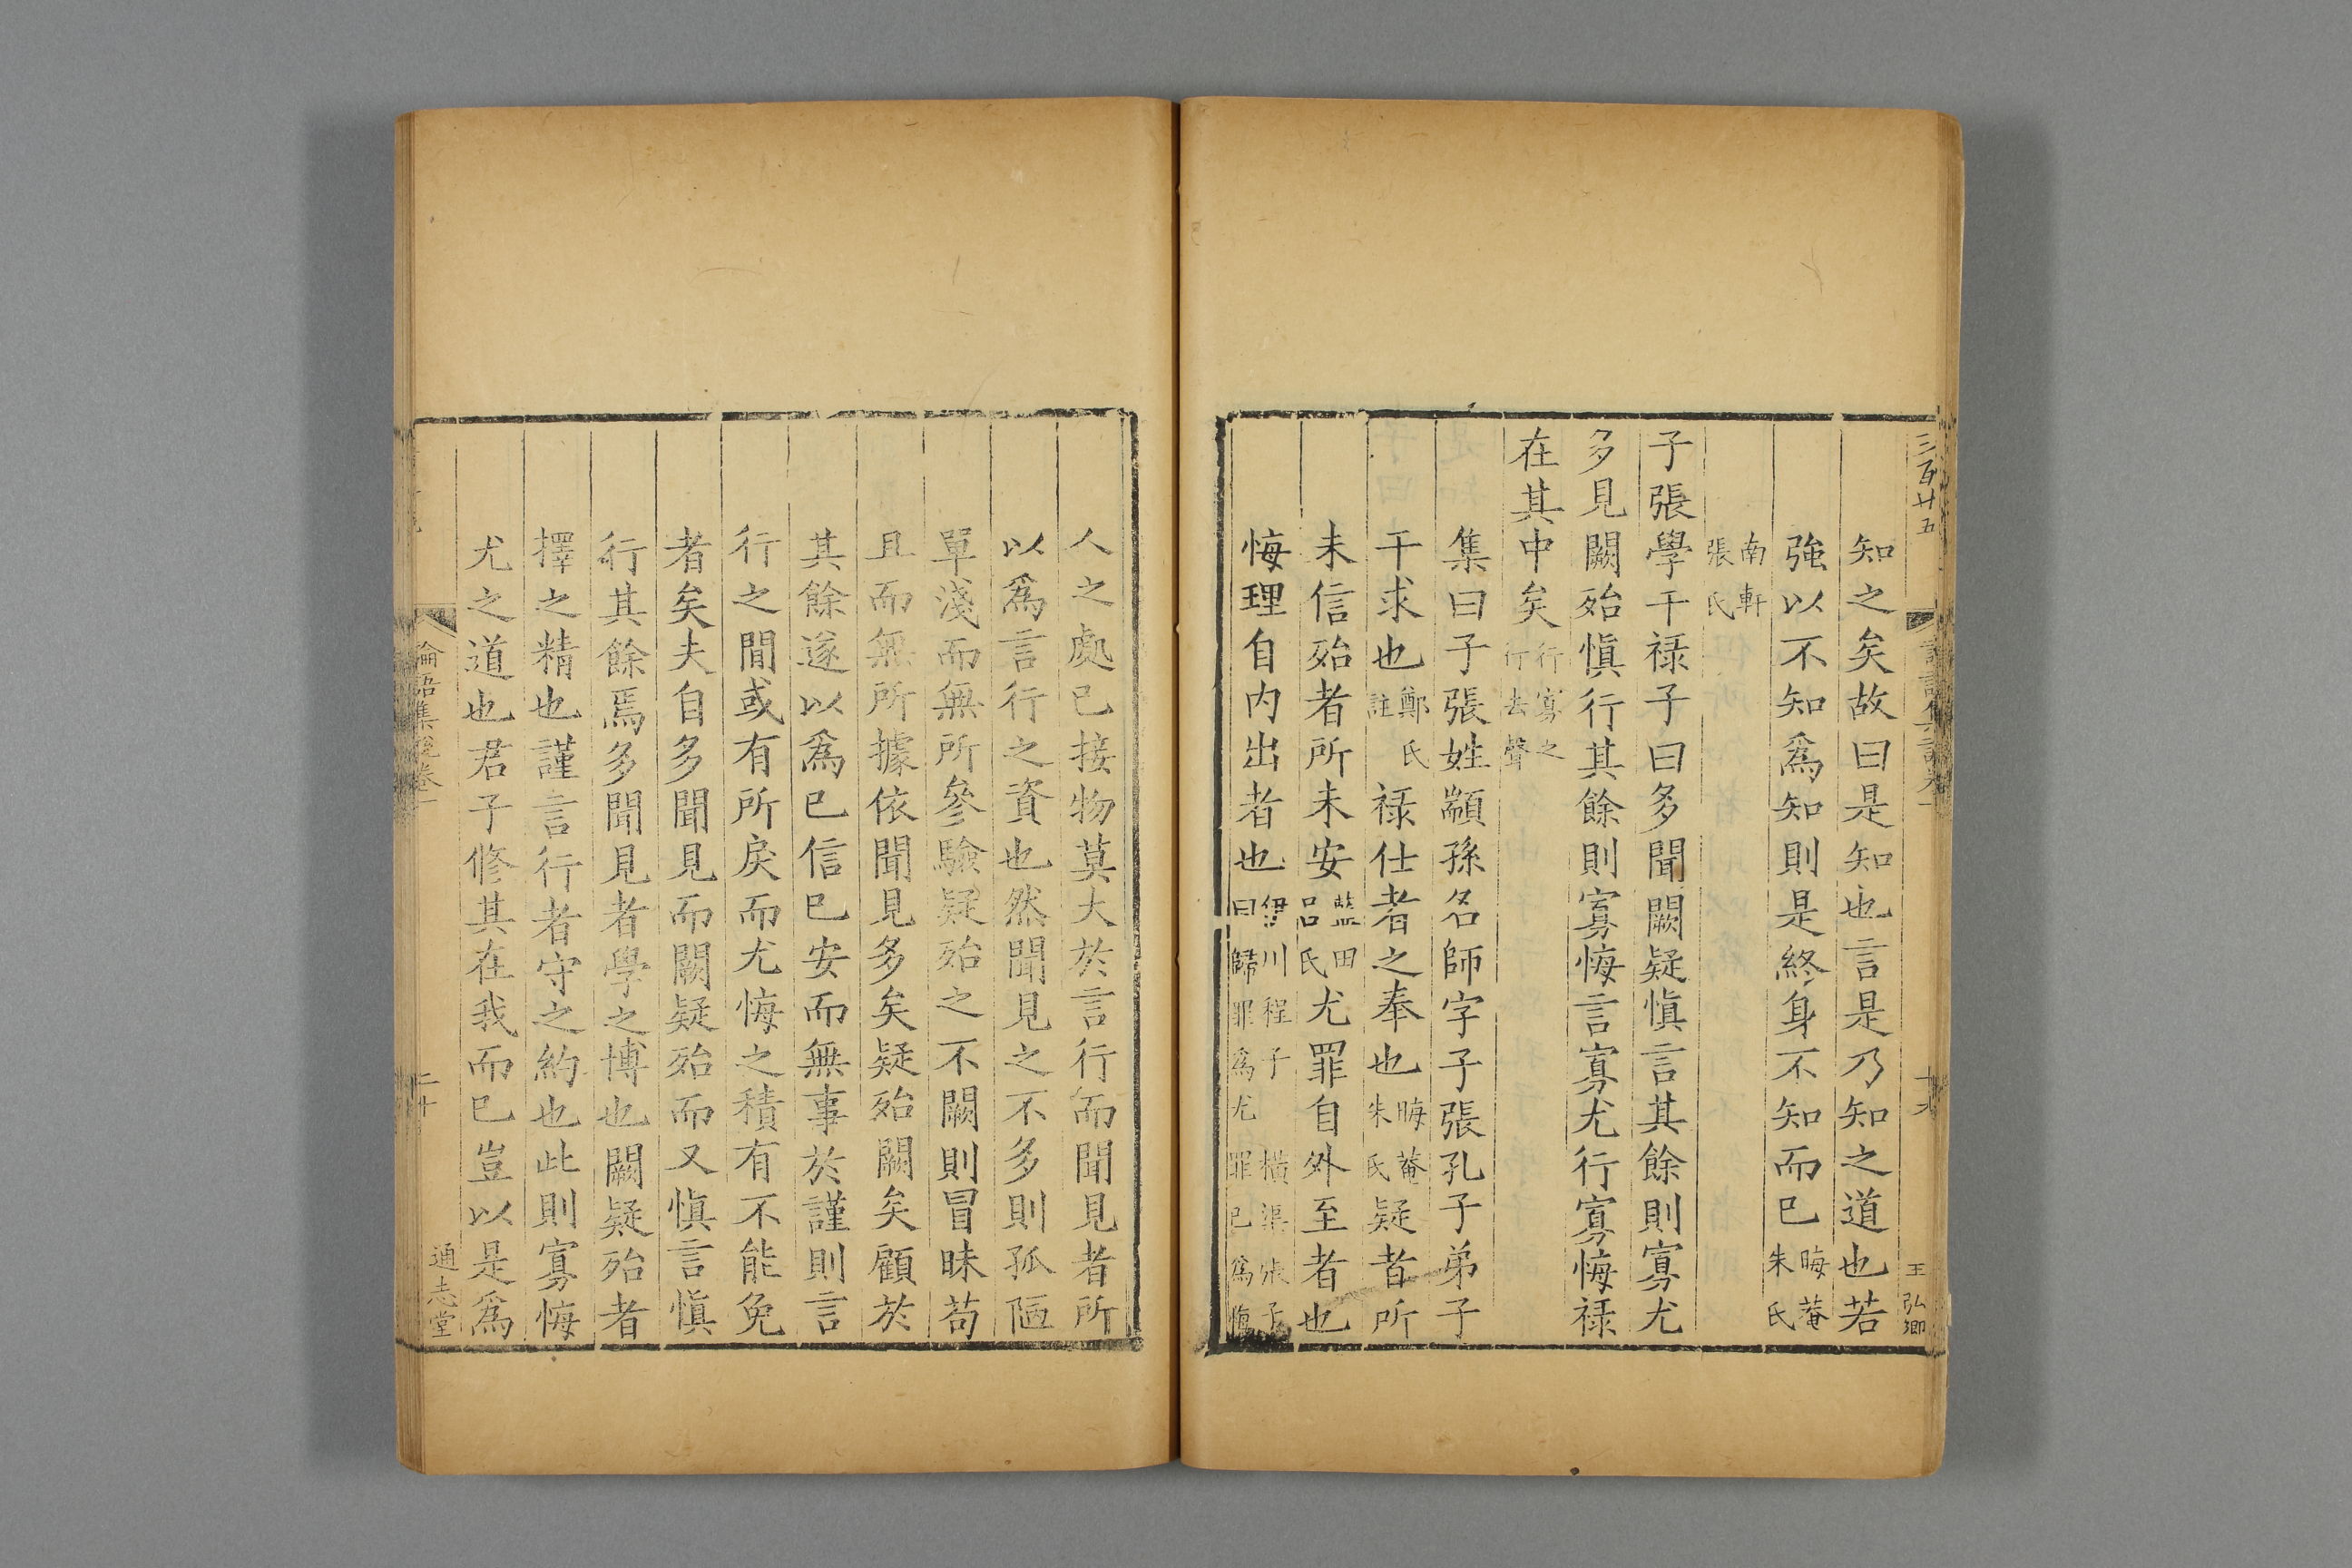 三百廿五
十九
王弘卿
知之矣故曰是知也言是乃知之道也若
強以不知爲知則是終身不知而已晦菴朱氏
南軒張氏
子張學干祿子曰多聞闕疑愼言其餘則寡尤
多見闕殆愼行其餘則寡悔言寡尤行寡悔祿
在其中矣行寡之行去聲
集曰子張姓顓孫名師字子張孔子弟子
干求也鄭氏註祿仕者之奉也晦菴朱氏疑者所
未信殆者所未安藍田呂氏尤罪自外至者也
悔理自内出者也伊川程子曰歸罪爲尤橫渠張子罪己爲悔
人之處己接物莫大於言行而聞見者所
以爲言行之資也然聞見之不多則孤陋
單淺而無所參驗疑殆之不闕則冒昧苟
且而無所據依聞見多矣疑殆闕矣顧於
其餘遂以爲已信已安而無事於謹則言
行之閒或有所戾而尤悔之積有不能免
者矣夫自多聞見而闕疑殆而又愼言愼
行其餘焉多聞見者學之博也闕疑殆者
擇之精也謹言行者守之約也此則寡悔
尤之道也君子修其在我而已豈以是爲
論語集說卷一
二十
通志堂